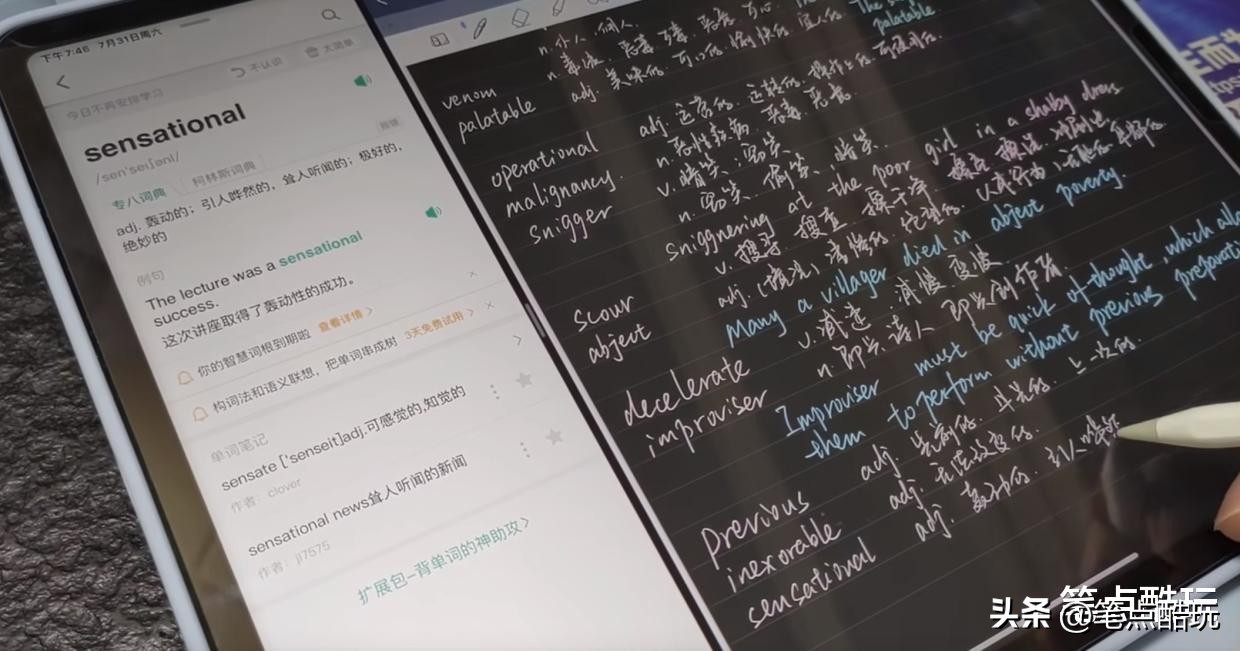 下午7:46 7月31日周六
不认识
太简单
今日不再安排学习
sensational
/sen'seɪʃənl/
报错
专八词典
柯林斯词典
adj. 轰动的；引人哗然的，耸人听闻的；极好的，
绝妙的
例句
The lecture was a sensational
success.
这次讲座取得了轰动性的成功。
你的智慧词根到期啦 查看详情
构词法和语义联想，把单词串成树 3天免费试用
单词笔记
sensate ['senseit]adj.可感觉的,知觉的
作者：clover
sensational news耸人听闻的新闻
作者：jl7575
扩展包–背单词的神助攻
palatable
venom
palatable adj. 美味的 可口的 愉快的 宜人的
operational adj. 运营的 运转的
malignancy. n. 恶性疾病 恶毒
snigger v. 暗笑；窃笑
n. 窃笑 偷笑 暗笑
sniggnering at the poor girl in a shabby dress
scour v. 搜寻 搜查 擦干净
abject
Many a villager died in abject poverty.
decelerate v. 减速 减慢 变慢
improviser n. 即兴诗人 即兴创作者.
Improviser must be quick of thought, which
them to perform without previous
previous adj. 先前的 早先的 上一次的
inexorable adj. 无法改变的.
sensational adj. 轰动的 引人哗然
头条 @笔点酷玩
笔点酷玩